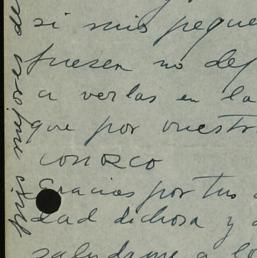 si mis peque
fuesen no de
a verlas en la
que por vuestr
conozco
Gracias por tus
dad dichosa y
saludame a lo
mis mejores de